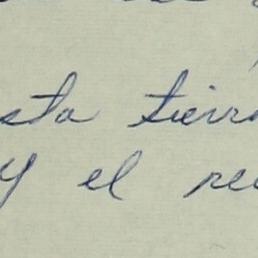 sta tierr
y el rec